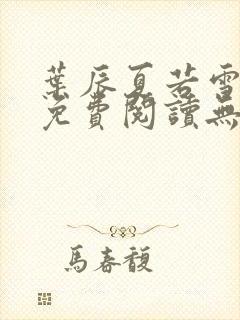 葉辰夏若雪
免費閱讀無
馬春馥